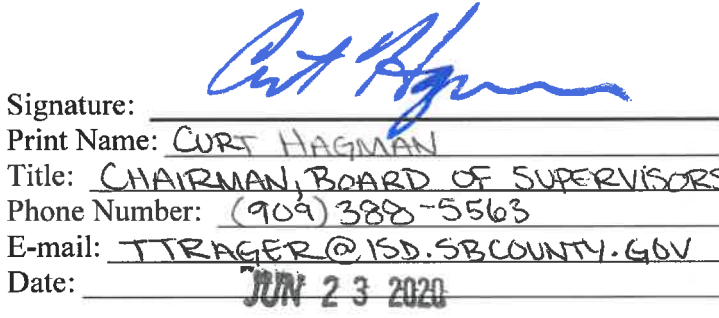 Signature: Curt Hagman
Print Name: CURT HAGMAN
Title: CHAIRMAN, BOARD OF SUPERVISORS
Phone Number: (909) 388-5563
E-mail: TTRAGER@ISD.SBCOUNTY.GOV
Date: JUN 23 2020